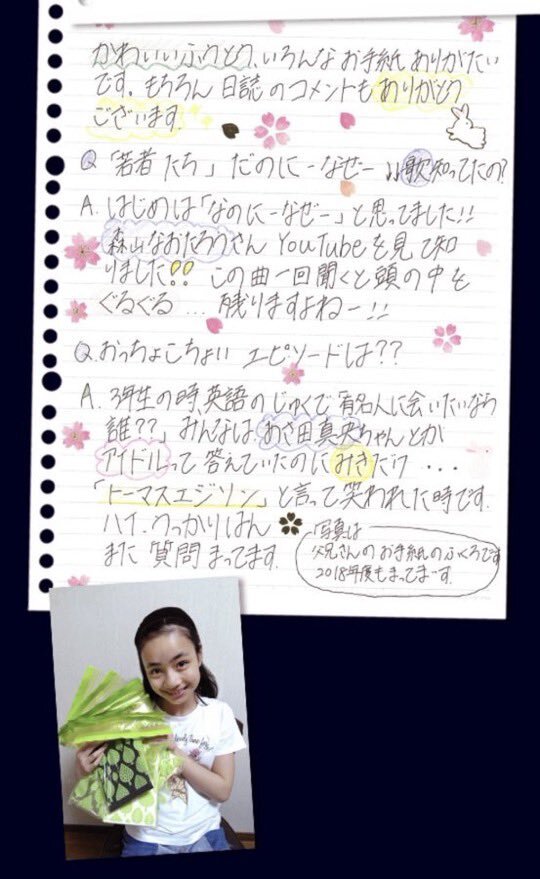 かわいいふうとう、いろんなお手紙ありがたい
です。もちろん日誌のコメントもありがとう
ございます。
Q「若者たち」だのにーなぜー♩♩歌知ってたの?
A. はじめは「なのにーなぜー」と思ってました!!
森山なおたろうさん YouTubeを見て知
りました!! この曲一回聞くと頭の中を
ぐるぐる…残りますよねー!!
Q.おっちょこちょい エピソードは??
A. 3年生の時、英語のじゅくで「有名人に会いたいなら
誰??」みんなは、あさ田真央ちゃんとか
アイドルって答えていたのにみきだけ・・・
「トーマスエジソン」と言って笑われた時です。
ハイ、うっかりはん
また質問まってます。
写真は
父兄さんのお手紙のふくろです
2018年度もまってまーす。